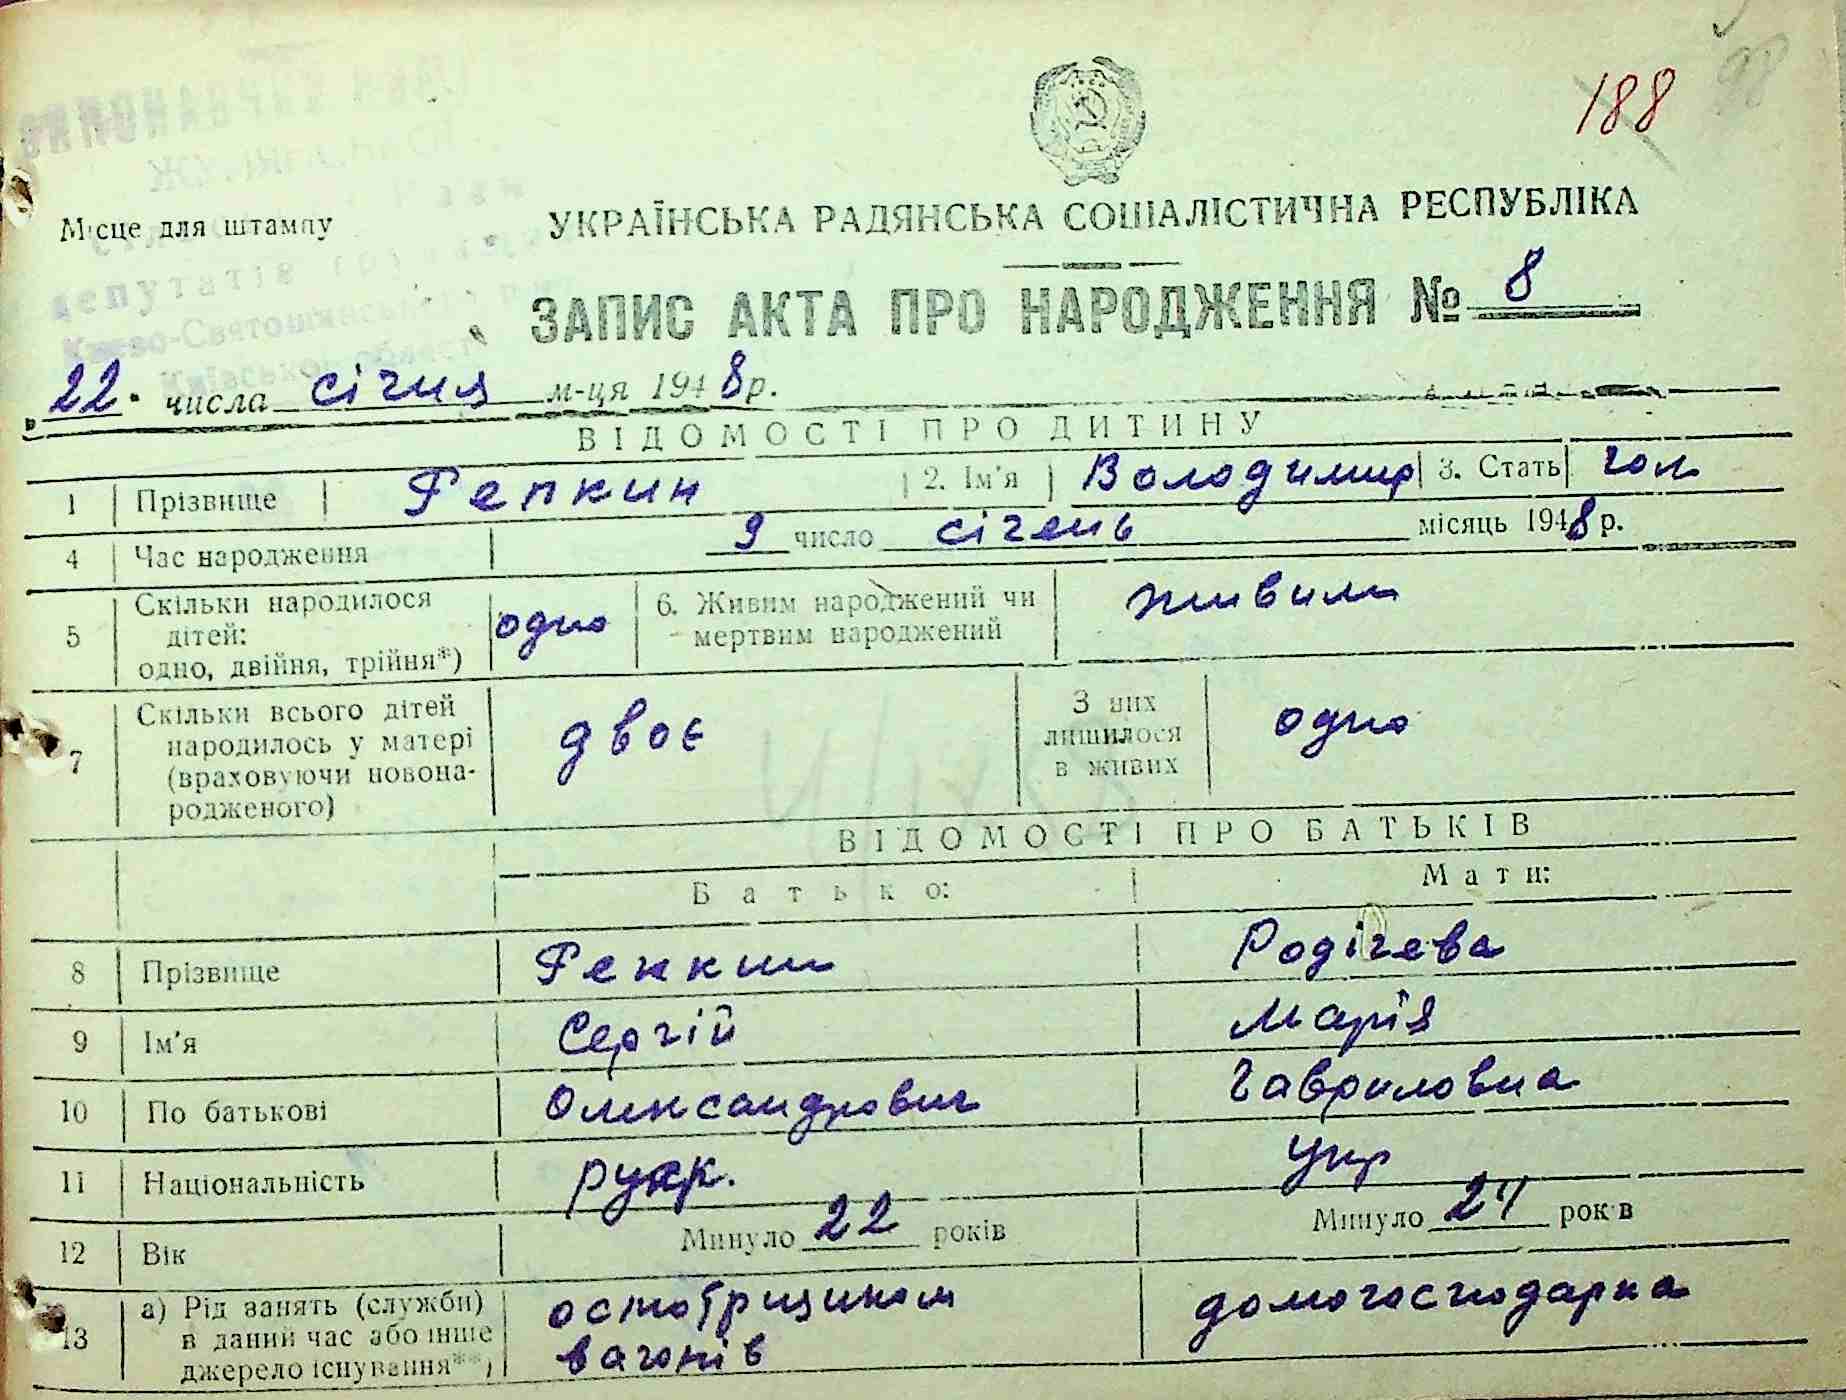 188
98
Місце для штампу
УКРАЇНСЬКА РАДЯНСЬКА СОЦІАЛІСТИЧНА РЕСПУБЛІКА
депутатів
Києво-Святошинського
Київської області
ЗАПИС АКТА ПРО НАРОДЖЕННЯ № 8
22. числа січня м-ця 1948 р.
ВІДОМОСТІ ПРО ДИТИНУ
1 Прізвище Репкин 2. Ім'я Володимир 3. Стать чол
4 Час народження 9 число січень місяць 1948 р.
5 Скільки народилося дітей: одно, двійня, трійня*) одно 6. Живим народжений чи мертвим народжений живим
7 Скільки всього дітей народилось у матері (враховуючи новонародженого) двоє З них лишилося в живих одно
ВІДОМОСТІ ПРО БАТЬКІВ
Батько: Мати:
8 Прізвище Репкин Родічева
9 Ім'я Сергій Марія
10 По батькові Олександрович Гавриловна
11 Національність укр
12 Вік Минуло 22 років Минуло 24 років
13 а) Рід занять (служби) в даний час або інше джерело існування**) вагонів домогосподарка